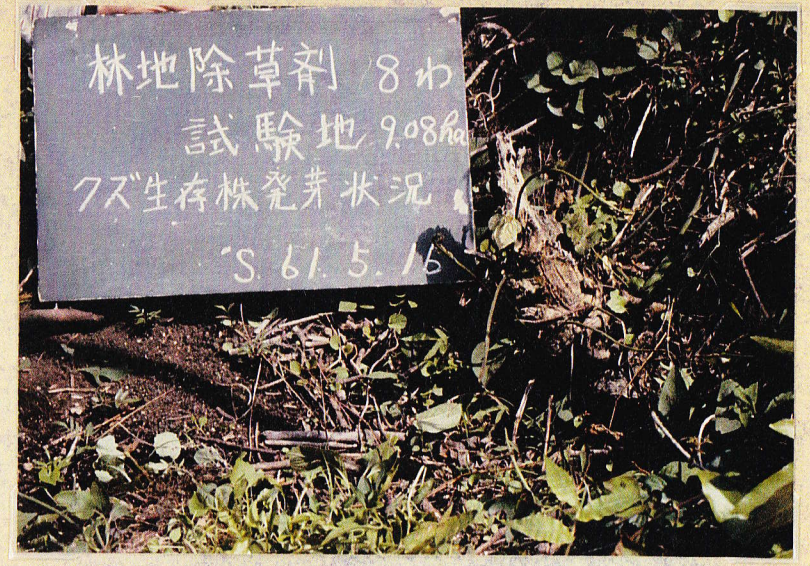 林地除草剤 18わ
試験地 9.08ha
クズ生存株発芽状況
S. 61. 5. 16